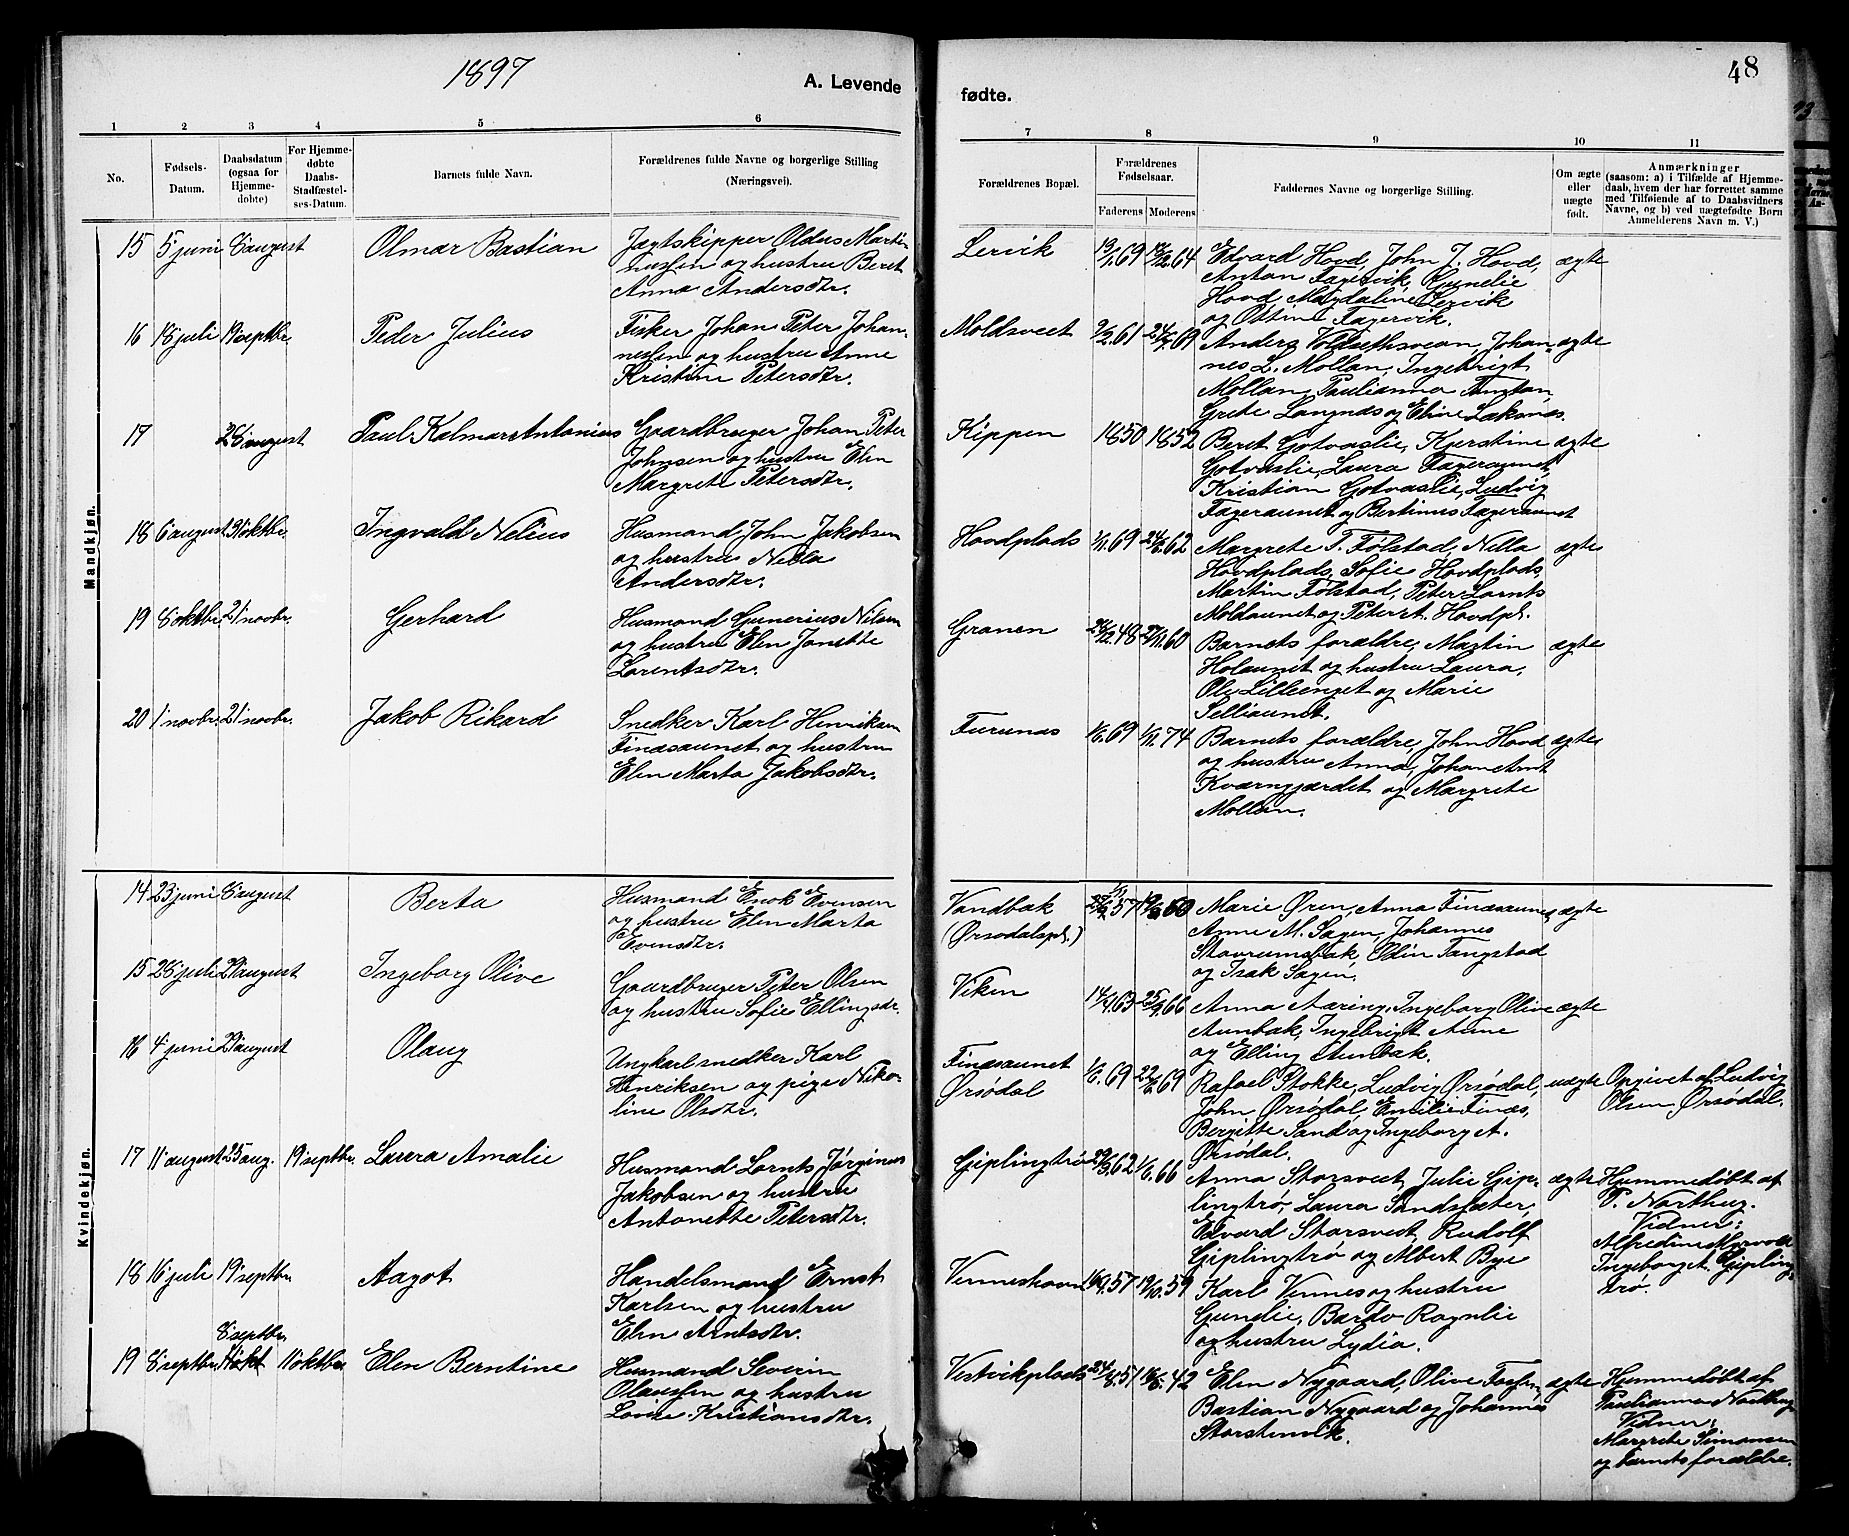 1897
A. Levende
fødte.
48
1 2 3 4 5 6 7 8 9 10 11
No.
Fødsels-
Datum.
Daabsdatum
(ogsaa for
Hjemme-
døbte)
For Hjemme-
døbte
Daabs-
Stadfæstel-
ses-Datum.
Barnets fulde Navn.
Forældrenes fulde Navne og borgerlige Stilling
(Næringsvei).
Forældrenes Bopæl.
Forældrenes
Fødselsaar.
Faderens Moderens
Faddernes Navne og borgerlige Stilling.
Om ægte
eller
uægte
født.
Anmærkninger
(saasom: a) i Tilfælde af Hjemme-
daab, hvem der har forrettet samme
med Tilføiende af to Daabsvidners
Navne, og b) ved uægtefødte Børn
Anmelderens Navn m. V.)
Mandkjøn.
15 5 juni 8 august Olmar Bastian
Jægtskipper Oldus Martin
hussen og hustru Beret
Anna Andersdtr.
Lervik 19/1.69 14/12.64
Edvard Hovd, John J. Hovd,
Anton Fagervik, Gunelie
Hovd, Magdaline Lervik
og Ottine Fagervik.
ægte
16 18 juli 19 septbr. Peder Julius
Fisker Johan Peter Johan-
nessen og hustru Anne
Kristine Petersdtr.
Moldsveet 9/2.61 24/7.69
Anders Voldsethsvean, Johan-
nes L. Mollan, Ingebrigt
Mollan, Paulianna Tungtan,
Grete Langnæs og Eline Laksnæs.
ægte
17 28 august Paul Kalmar Antonius
Gaardbruger Johan Peter
Johnsen og hustru Elen
Margrete Petersdtr.
Kippen 1850 1852
Beret Gotvaslie, Kjerstine
Gotvaslie, Laura Fageraunet,
Kristian Gotvaslie, Ludvig
Fageraunet og Bertinus Fageraunet
ægte
18 6 august 31 oktbr. Ingvald Nelius
Husmand John Jakobsen
og hustru Nilla
Andersdtr.
Hovdplads 1/11.69 24/6.62
Margrete T. Følstad, Nilla
Hovdplads, Sofie Hovdplads,
Martin Følstad, Peter Lornts
Moldaunet og Peter st. Hovdpl.
ægte
19 8 oktbr. 21 novbr. Gerhard
Husmand Gunerius Nilsen
og hustru Elen Janette
Lorentsdtr.
Granen 26/12.48 27/11.60
Barnets forældre, Martin
Holaunet og hustru Laura,
Ole Lilleenget og Marie
Selliaunet.
ægte
20 1 novbr. 21 novbr. Jakob Rikard
Snedker Karl Henriksen
Finæsaunet og hustru
Elen Marta Jakobsdtr.
Furunæs 1/6.69 1/11.74
Barnets forældre, John Hovd
og hustru Anna, Johan Arnt
Kværngjærdet og Margrete
Mollan.
ægte
Kvindekjøn.
14 23 juni 8 august Berta
Husmand Enok Evensen
og hustru Elen Marta
Evensdtr.
Vandbak
(Ørsodalspl.)
57 19/3.60
Marie Øren, Anna Finæsaunet,
Anne M. Sagen, Johannes
Stavrumsbak, Odin Tangstad
og Isak Sagen.
ægte
15 28 juli 29 august Ingeborg Olive
Gaardbruger Peter Olsen
og hustru Sofie Ellingsdtr.
Viken 14/4.63 25/9.66
Anna Aaring, Ingeborg Olive
Aunbak, Ingebrigt Aune
og Elling Aunbak.
ægte
16 4 juni 29 august Olaug
Ungkarl snedker Karl
Henriksen og pige Niko-
line Olsdtr.
Finæsaunet
Ørsødal
1/6.69 22/6.69
Rafael Stokke, Ludvig Ørsødal,
John Ørsødal, Emilie Finæs,
Bergitte Sand og Ingeborg A.
Ørsødal.
uægte
Opgivet af Ludvig
Olsen Ørsødal.
17 11 august 25 aug. 19 septbr. Laura Amalie
Husmand Lornts Jørginus
Jakobsen og hustru
Antonette Petersdtr.
Giplingtrø 29/3.62 1/6.66
Anna Storsveet, Julie Gip-
lingtrø, Laura Sandsæter,
Edvard Storsveet, Rudolf
Giplingtrø og Albert Bye
ægte
Hjemmedøbt af
P. Northug.
Vidner:
Alfredine Morvold
Ingeborg A. Gipling-
trø.
18 16 juli 19 septbr. Aagot
Handelsmand Ernst
Karlsen og hustru
Elen Arntsdtr.
Venneshavn 16/9.57 19/10.59
Karl Vennes og hustru
Gunelie, Bardo Ragnlie
og hustru Lydia.
19 8 septbr. 8 septbr. 11 oktbr. Elen Berntine
Husmand Severin
Olaussen og hustru
Lovise Kristiansdtr.
Vestvikplads 24/8.51 18/6.42
Elen Nygaard, Olive Fossen,
Bastian Nygaard og Johannes
Storstenvik.
ægte
Hjemmedøbt af
Paulianna Northug
Vidner:
Margrete Simonsen
og barnets forældre.